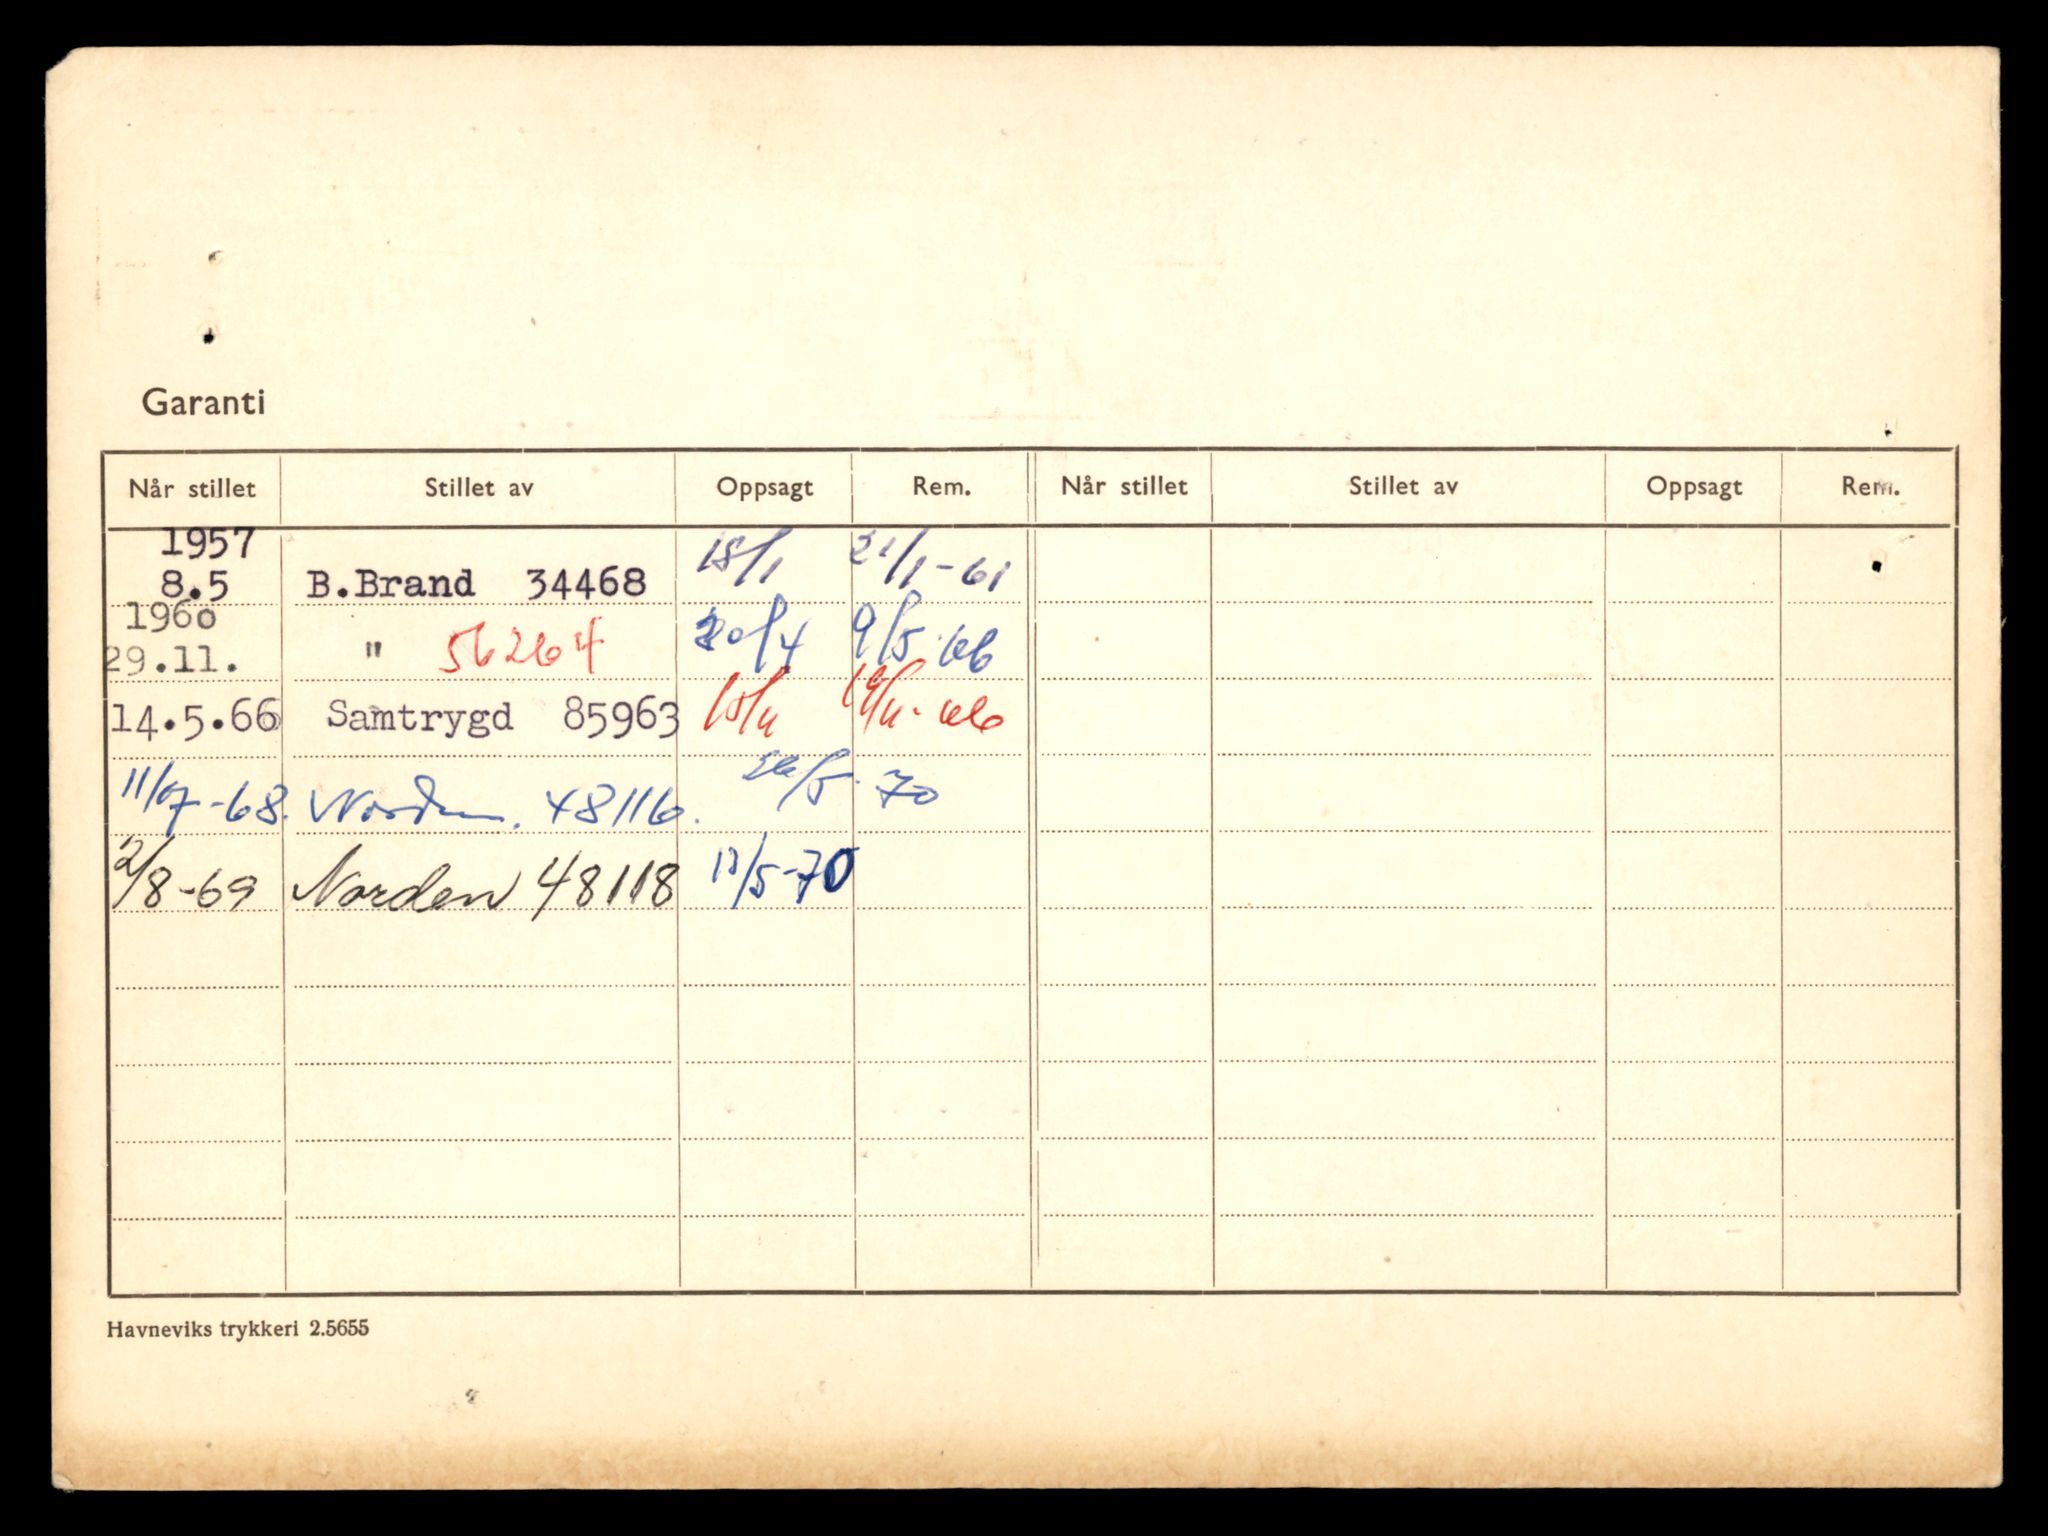 Garanti
Når stillet Stillet av Oppsagt Rem. Når stillet Stillet av Oppsagt Rem.
1957
8.5 B.Brand 34468 18/1 21/1-61
1960
29.11. " 56264 20/4 9/5-66
14.5.66 Samtrygd 85963
11/07-68. Norden. 48116. 26/5-70
2/8-69 Norden 48118 12/5-70
Havneviks trykkeri 2.5655